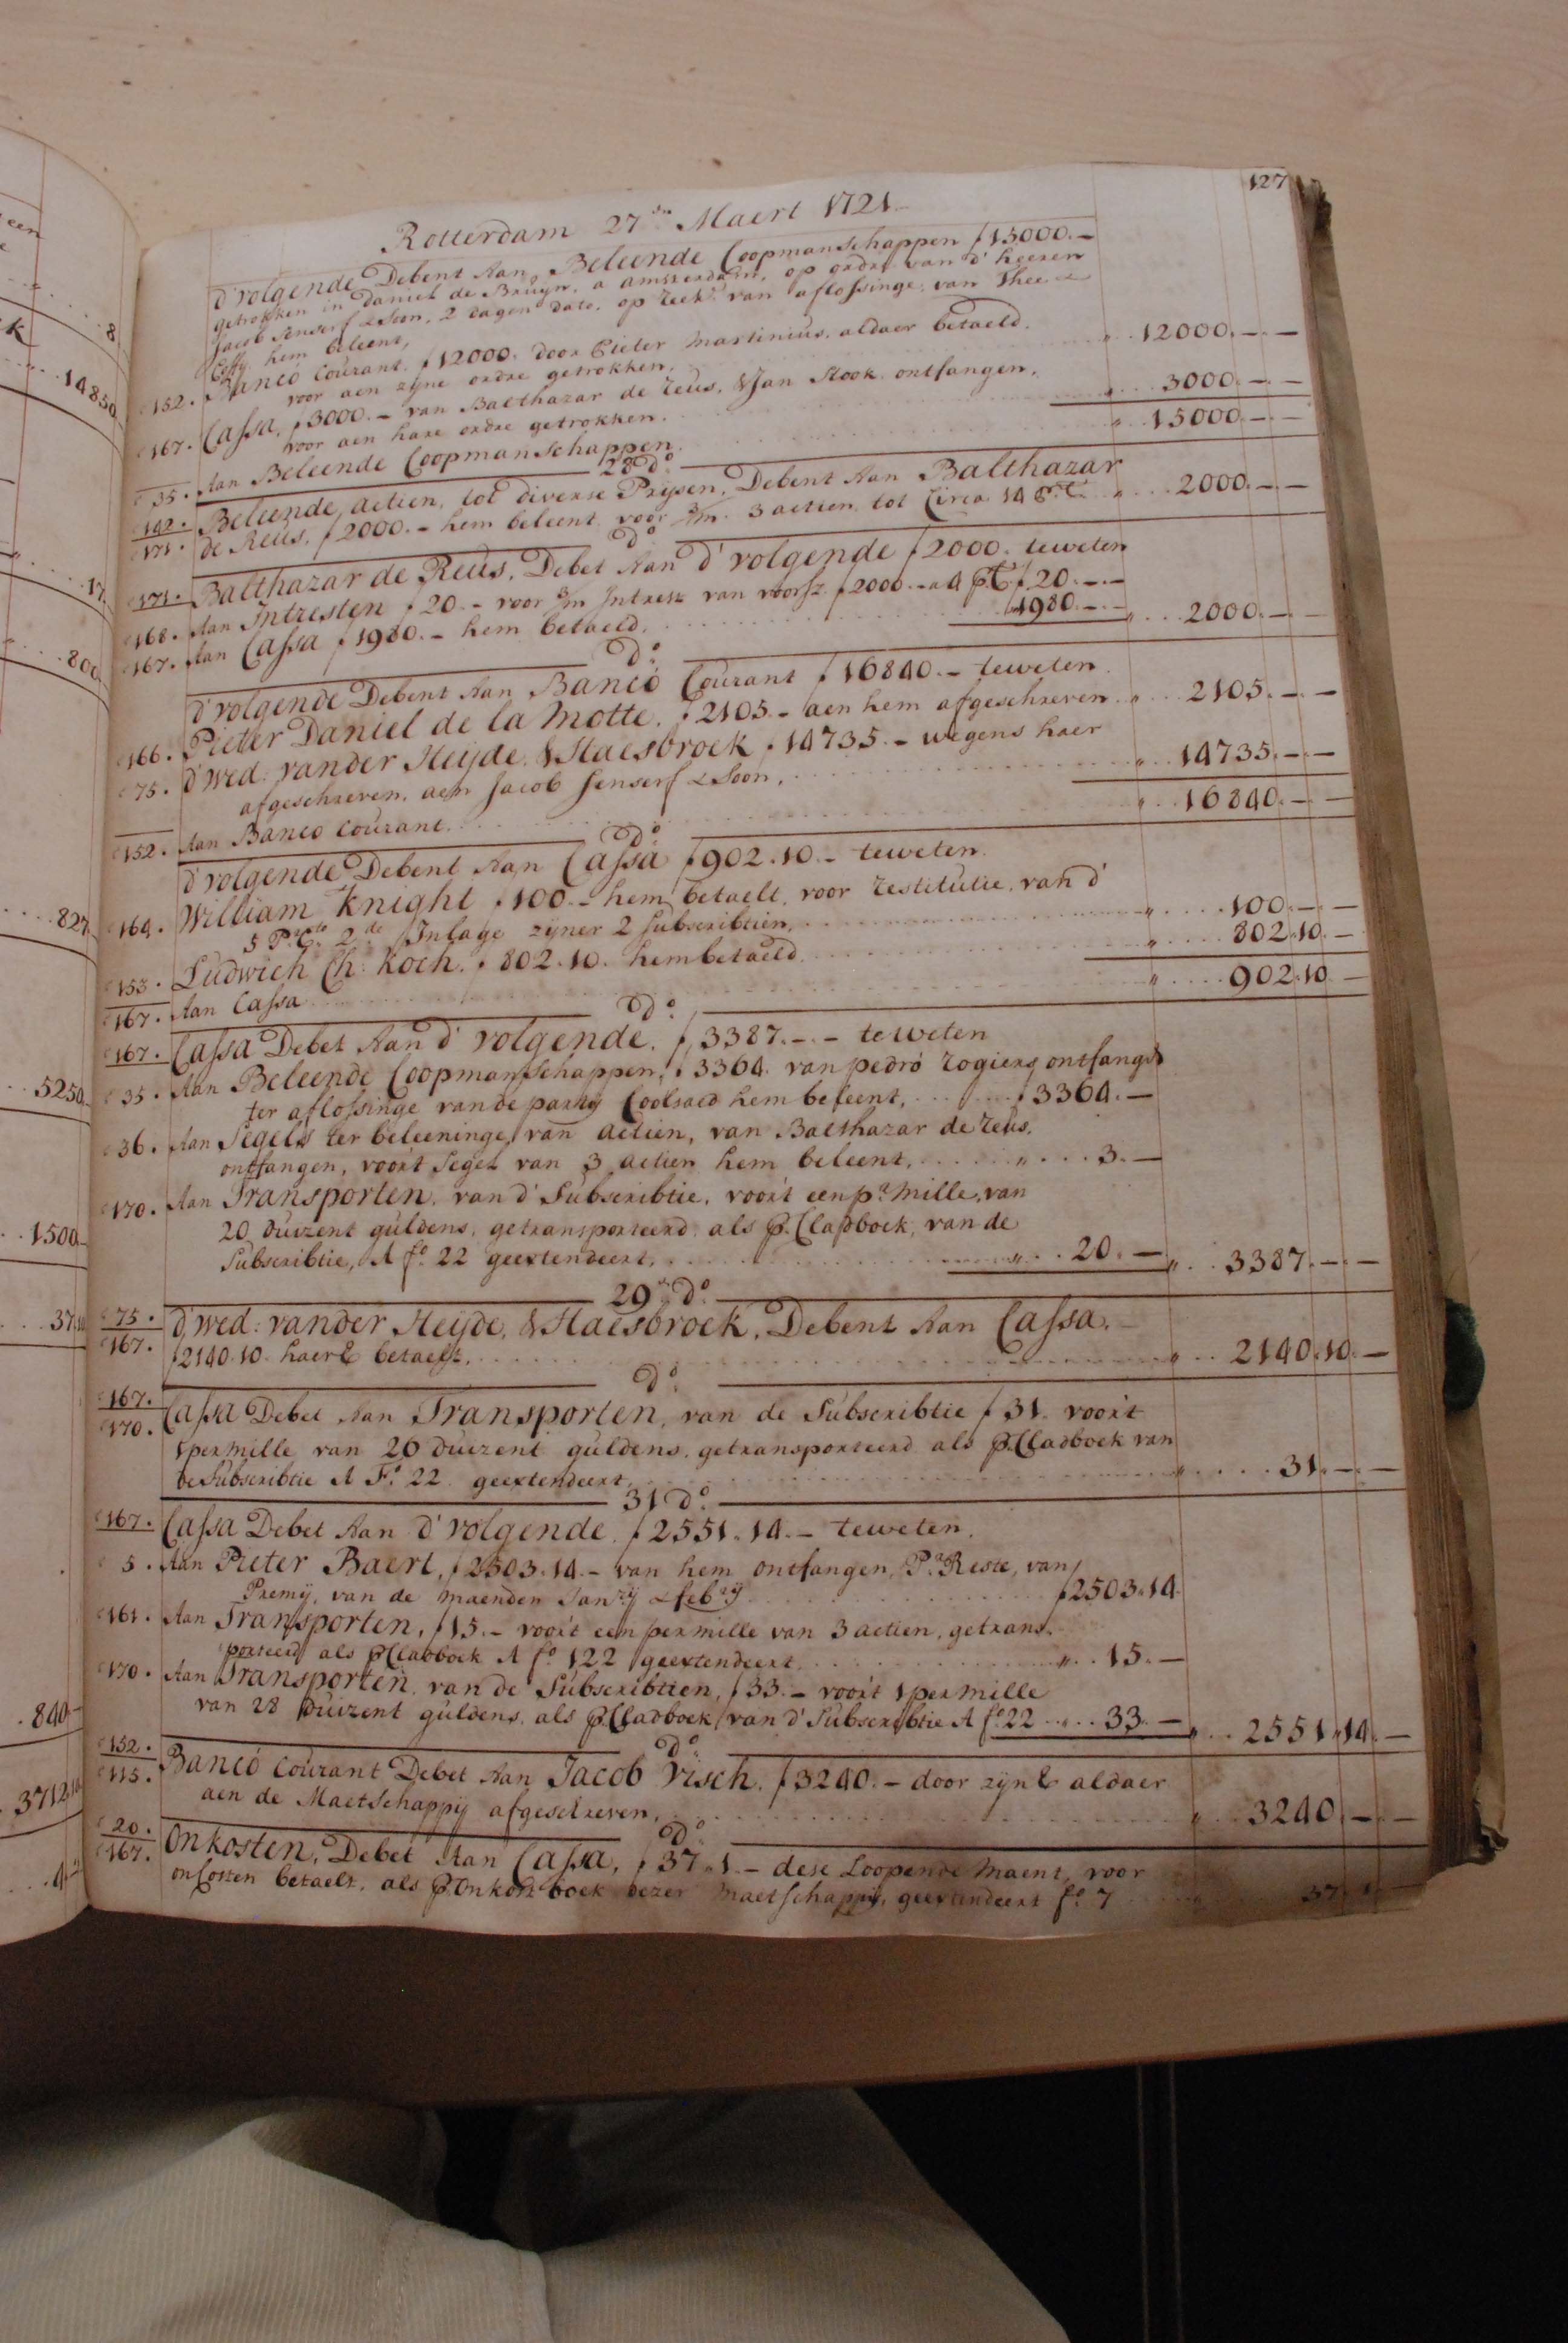 127
Rotterdam 27en Maert 1721
d'volgende Debent Aan Beleende Coopmanschappen f 15000.-
getrokken in Daniel de Bruyn, a amsterdam, op ordre van d'heeren
Jacob Senserf & Soon, 2 dagen dato, op reek: van aflossinge, van Thee &
Coffy hem beleent,
152. Banco Courant, f 12000. door Pieter Martinius, aldaer betaeld,
voor aen zyne ordre getrokken, " 12000.-.-
167. Cassa, f 3000.- van Balthazar de Reus, & Jan Stook, ontfangen,
voor aen hare ordre getrokken. " 3000.-.-
35. Aan Beleende Coopmanschappen. " 15000.-.-
28 Do
142. Beleende actien, tot diverse Prysen, Debent Aan Balthazar
171. de Reus, f 2000.- hem beleent voor 3/m 3 actien tot Circa 14 P.Ct " 2000.-.-
Do
171. Balthazar de Reus, Debet Aan d'volgende f 2000. teweten
168. Aan Intresten f 20.- voor 3/m Intrest van voorsz f 2000.- a 4 P Ct f 20.-.-
167. Aan Cassa f 1980.- hem betaeld. " 1980.-.- " 2000.-.-
Do
d'volgende Debent Aan Banco Courant f 16840.- teweten
166. Pieter Daniel de la Motte, f 2105.- aen hem afgeschreven. " 2105.-.-
75. d'Wed: vander Heijde, & Staesbroek, f 14735.- wegens haer
afgeschreven, aen Jacob Senserf & Soon, " 14735.-.-
152. Aan Banco Courant. " 16840.-.-
Do
d'volgende Debent Aan Cassa f 902.10.- teweten.
164. William Knight f 100.- hem betaelt, voor restitutie, van d'
5 P.r C.to 2de Inlage zyner 2 Subscribtien, " 100.-.-
153. Ludwich Ch: Koch, f 802.10. hem betaeld " 802.10.-
167. Aan Cassa " 902.10.-
Do
167. Cassa Debet Aan d'volgende, f 3387.-.- teweten
35. Aan Beleende Coopmanschappen, f 3364. van pedro Rogiers ontfangen
ter aflossinge vande party Coolsaed hem beleent, f 3364.-
36. Aan Segels ter beleeninge, van actien, van Balthazar de Reus,
ontfangen, voor't Segel van 3 actien hem beleent, " 3.-
170. Aan Transporten, van d'Subscribtie, voor't een p.r mille, van
20 duizent guldens, getransporteerd als P. Cladboek, van de
Subscribtie, A fo. 22 geextendeert, " 20.- " 3387.-.-
29en Do
75. d'Wed: vander Heijde, & Staesbroek, Debent Aan Cassa,
167. f 2140.10. haer E betaelt, " 2140.10.-
Do
167. Cassa Debet Aan Transporten, van de Subscribtie f 31. voor't
170. 1 per mille van 26 duizent guldens, getransporteerd als P. Cladboek van
de Subscribtie A Fo. 22 geextendeert, " 31.-.-
31 Do
167. Cassa Debet Aan d'volgende, f 2551.14.- teweten.
5. Aan Pieter Baert, f 2503.14.- van hem ontfangen, P.r Reste, van
Premij, van de maenden Janrij & febrij f 2503.14.
161. Aan Transporten, f 15.- voor't een per mille van 3 actien, getrans-
porteed als P Cladboek A fo 122 geextendeert, " 15.-
170. Aan Transporten, van de Subscribtien, f 33.- voor't 1 per mille
van 28 duizent guldens, als P. Cladboek van d'Subscribtie A fo. 22 " 33.- " 2551.14.-
Do
152. Banco Courant Debet Aan Jacob Visch, f 3240.- door zyn E aldaer
115. aen de Maetschappij afgeschreven, " 3240.-.-
Do
20. Onkosten, Debet Aan Cassa, f 37.1.- dese Loopende Maent, voor
167. onkosten betaelt, als P. Onkost boek dezer maetschappij, geextendeert fo. 7 " 37.1.-
een
8
14850
17
800
827
5250
1500
37
840
3712